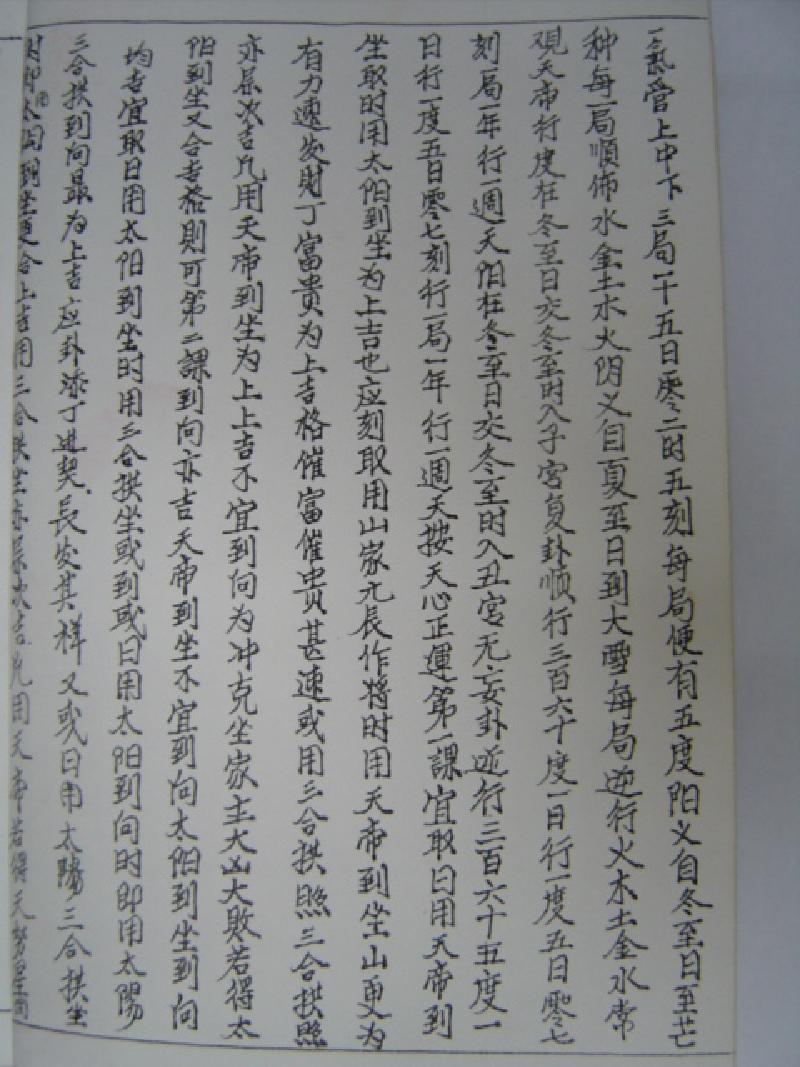 一氣管上中下三局一十五日零二时五刻每局便有五度阳义自冬至日至芒
种每一局順佈水金土水火阴义自夏至日到大雪每局逆行火木土金水常
观天帝行度在冬至日交冬至时入子宮复卦顺行三百六十度一日行一度五日零七
刻一局一年行一週天阳在冬至日交冬至时入丑宮无妄卦逆行三百六十五度一
日行一度五日零七刻行一局一年行一週天按天心正運第一課宜取日用天帝到
坐取时用太阳到坐为上吉也应刻取用山家元辰作将时用天帝到坐山更为
有力速发財丁富貴为上吉格催富催贵甚速或用三合拱照三合拱照
亦属次吉凡用天帝到坐为上上吉不宜到向为冲克坐家主大凶大敗若得太
阳到坐又合吉格則可第二課到向亦吉天帝到坐不宜到向太阳到坐到向
均吉宜取日用太阳到坐时用三合拱坐或到或日用太阳到向时即用太陽
三合拱到向最为上吉应卦添丁进契長发其样又或日用太陽三合拱坐
时即用太阳到坐更合上吉用三合拱坐亦属次吉凡用天帝若得天